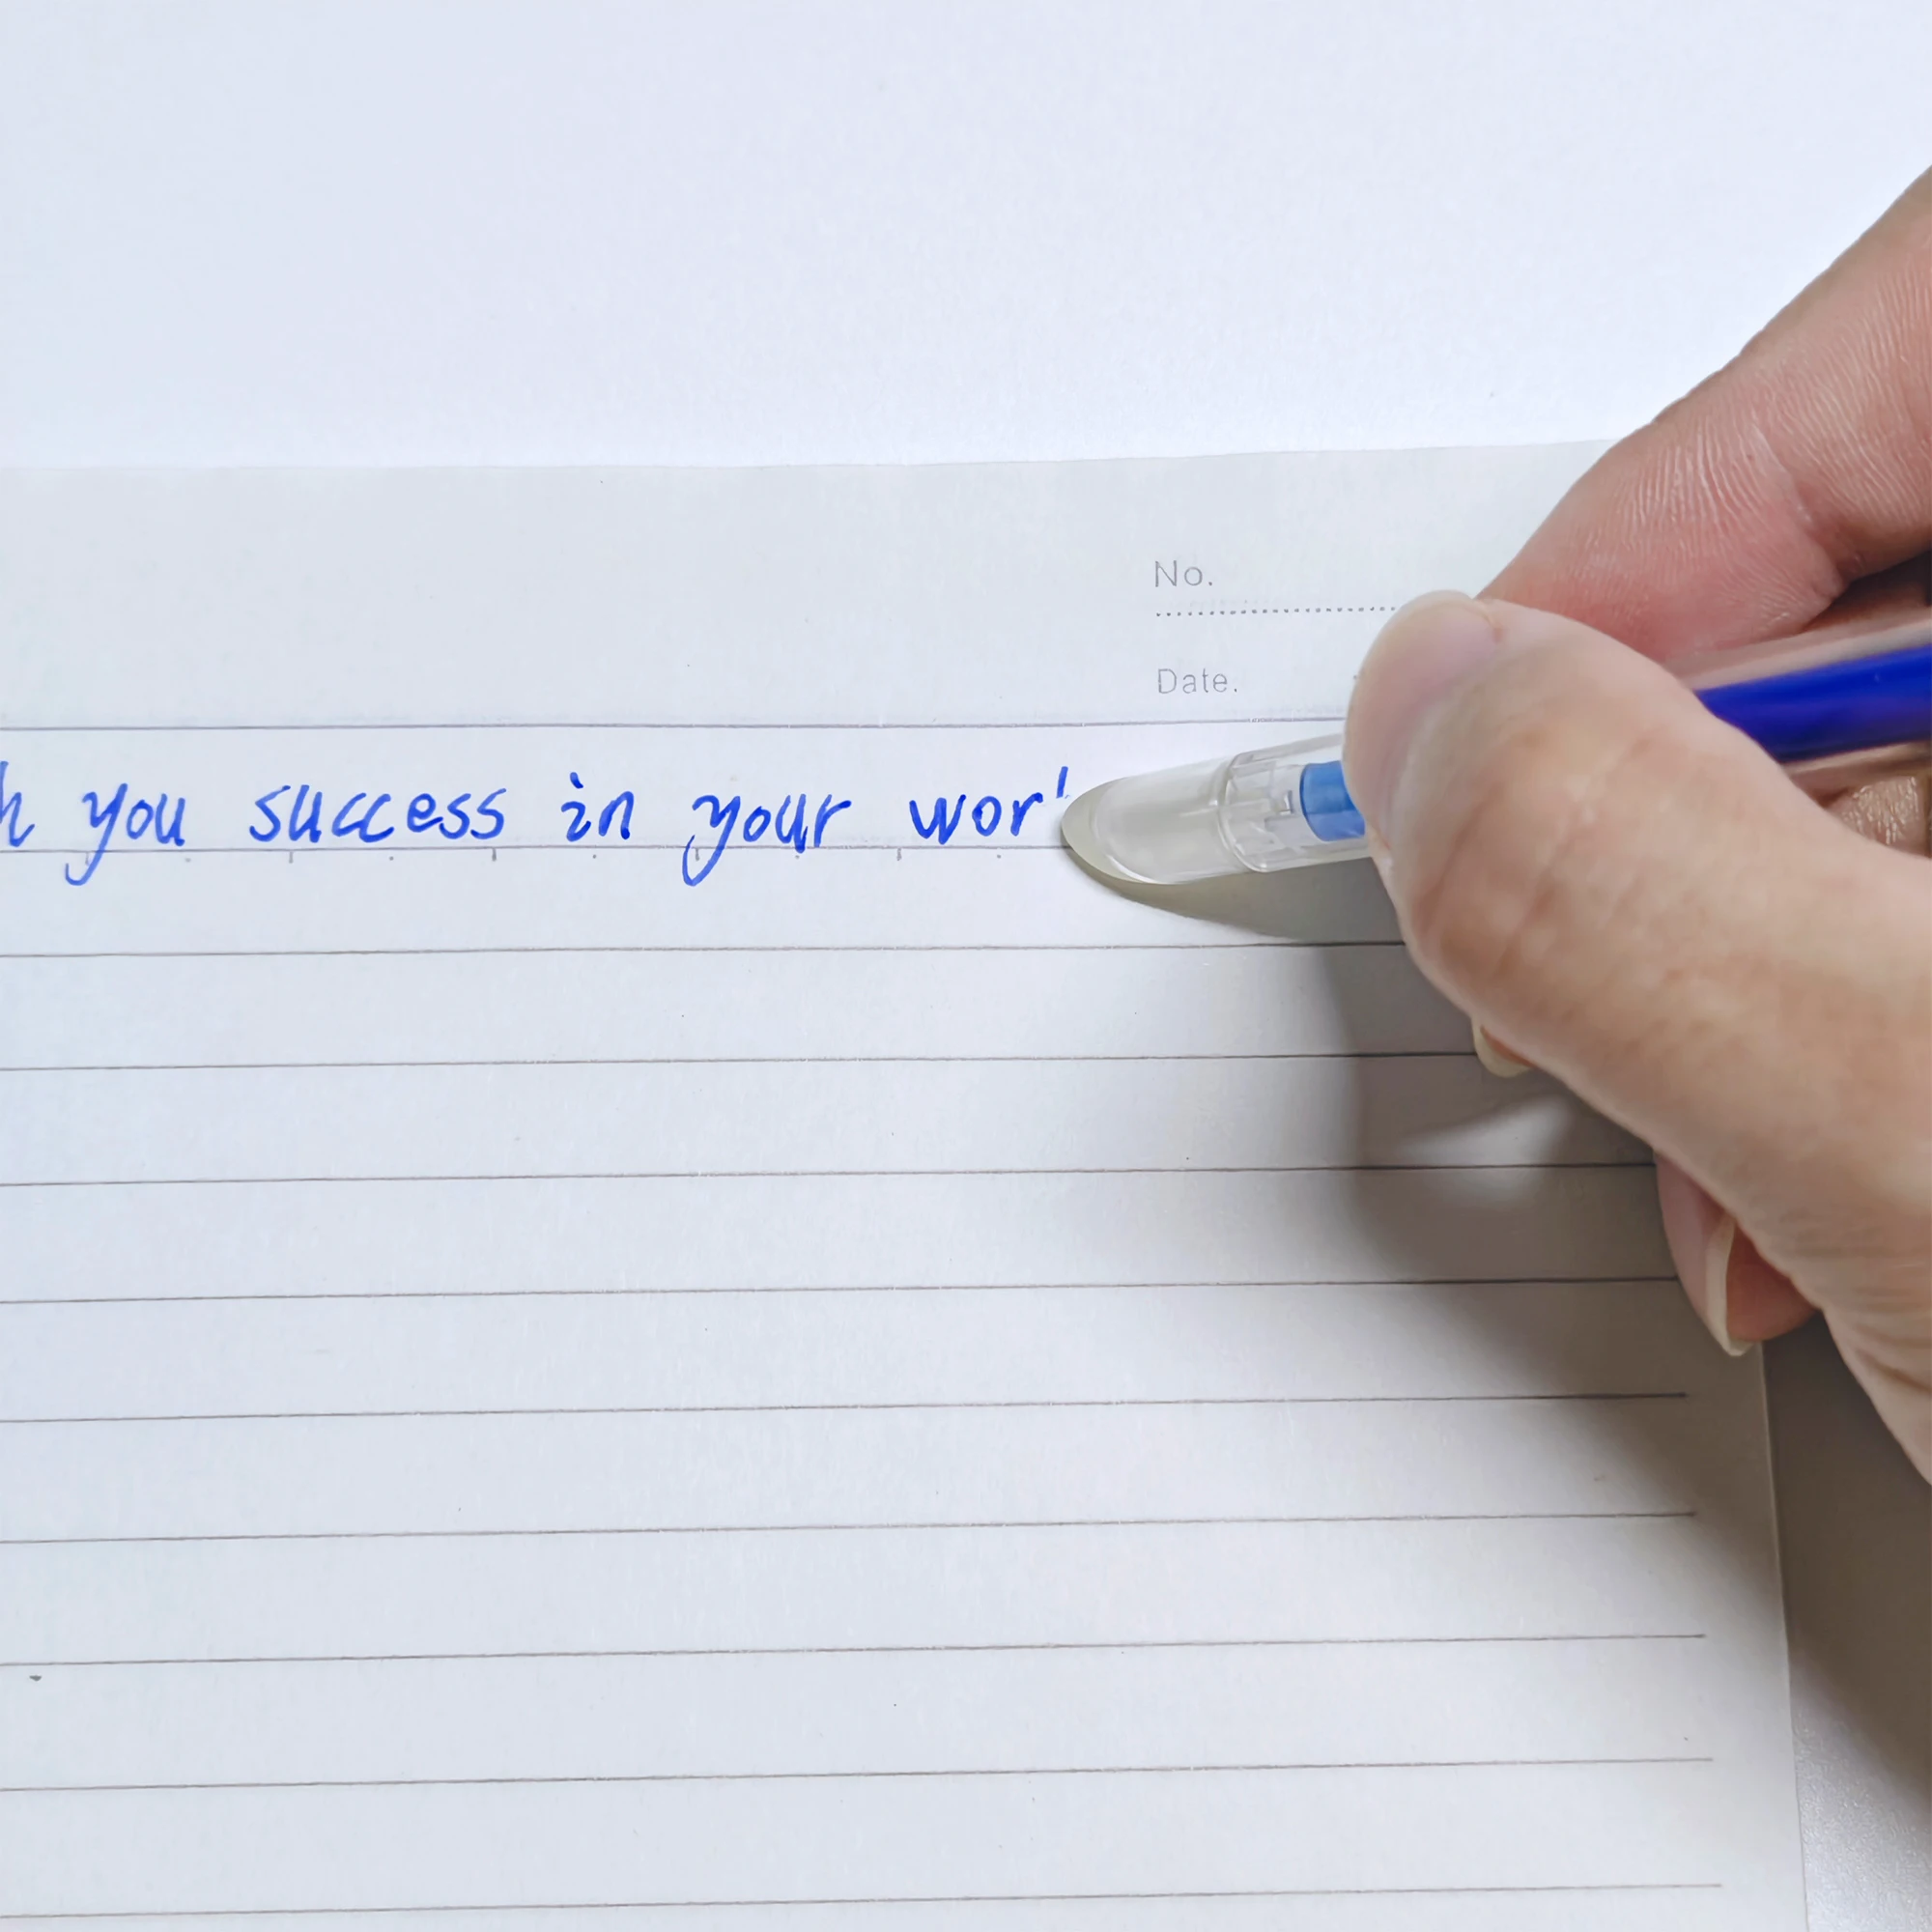 No.
Date.
you success in your